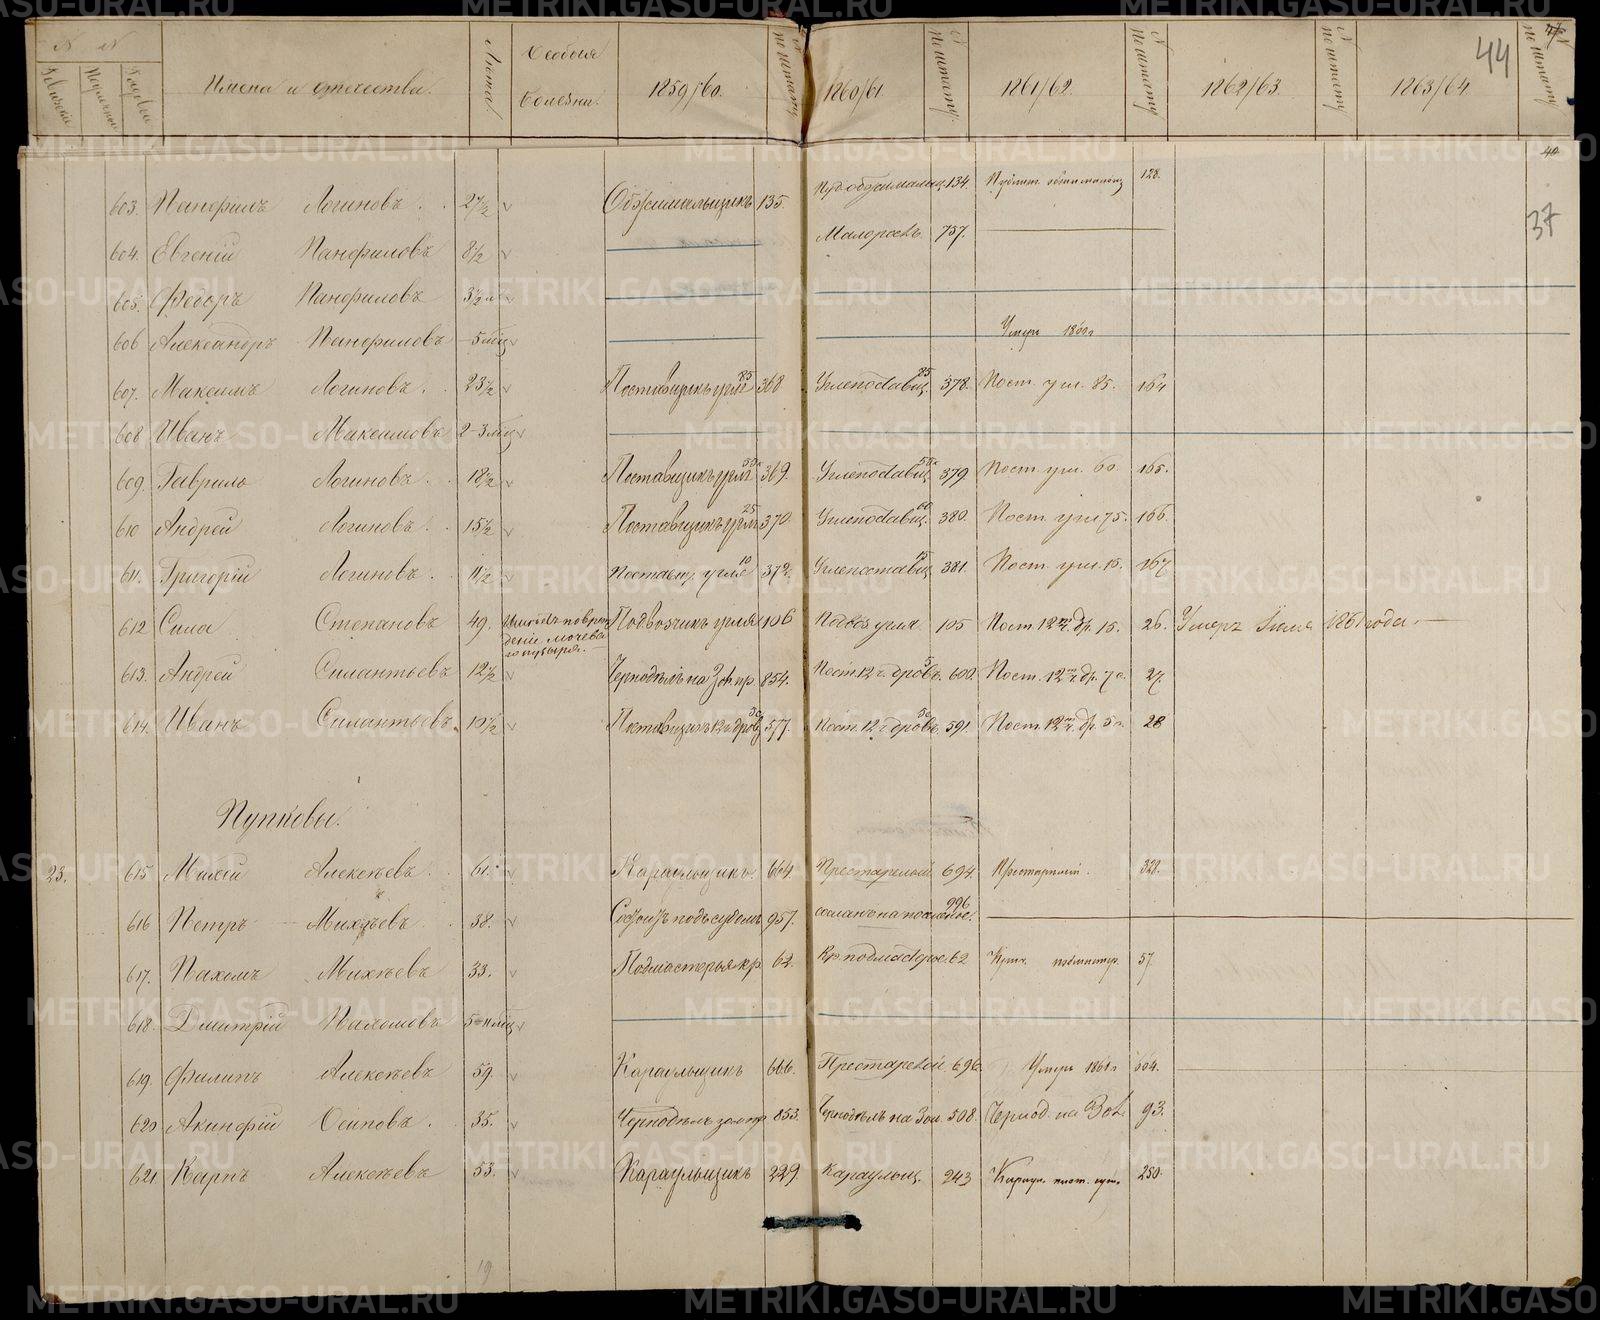 № №
Ревизскiе
Подушной
Годовые
Имена и отчества.
Лѣта
Особыя Болезни.
1859/60.
№ по штату
1860/61.
№ по штату.
1861/62.
№ по штату
1862/63.
№ по штату
1863/64
№ по штату
44
40
37
603. Панфилъ Логиновъ. 27½ Обжимальщикъ 135. Пуд. обжимальщ. 134. Пудлин. обжимальщ 128.
604. Евгенiй Панфиловъ 8½ Малоросл. 757.
605. Федоръ Панфиловъ 3½
606 Александръ Панфиловъ 5 мѣц Умеръ 1860 г
607. Максимъ Логиновъ. 23½ Поставщикъ угля 85 368 Углепоставщ. 85 378. Пост. угл. 85. 164
608 Иванъ Максимовъ 2-3 мѣц
609. Гаврило Логиновъ. 18½ Поставщикъ угля 50 369. Углепоставщ. 55 379 Пост. угл. 60. 165.
610 Андрей Логиновъ. 15½ Поставщикъ угля 25 370. Углепоставщ. 60 380. Пост. угл 75. 166.
611. Григорiй Логиновъ. 11½ Поставщ. угля 10 372. Углепоставщ 15 381. Пост. угл. 15. 167
612 Сила Степановъ 49. Имѣетъ повреж
денiе мочева
го пузыря. Подвозчикъ угля 106 Подвоз угля 105 Пост. 12 ч. др. 15. 26. Умеръ Iюля 1861 года.
613. Андрей Силантьевъ 12½ Чернодѣлъ на Зол. пр 854. Пост. 12 ч. дровъ. 5 600. Пост. 12 ч. др. 70. 27.
614. Иванъ Силантьевъ. 10½ Поставщикъ 12 ч. дровъ 30 577. Пост. 12 ч дровъ. 30 591. Пост. 12 ч. др. 50. 28
Пупковы.
23. 615 Михiй Алексѣевъ. 61. Караульщикъ. 664. Престарелый. 694. Престарѣлый. 320.
616 Петръ Михѣевъ. 38. Состоитъ подъ судомъ 957. сосланъ на поселенiе. 996
617. Пахомъ Михѣевъ 33. Подмастерья кр 62. Кр. подмастрье. 62 Крич. подмастер. 57.
618. Дмитрiй Пахомовъ 5-11 мѣц
619. Филипъ Алексѣевъ 59. Караульщикъ 666. Престарелой 696. Умеръ 1861 г 604.
620 Акинфiй Осиповъ. 35. Чернодѣлъ зол. пр 853. Чернодѣлъ на Зол. 508. Чернод. на Зол. 93.
621 Карпъ Алексѣевъ 53. Караульщикъ 229. Караульщ. 243 Караул. 250.
19
METRIKI.GASO-URAL.RU